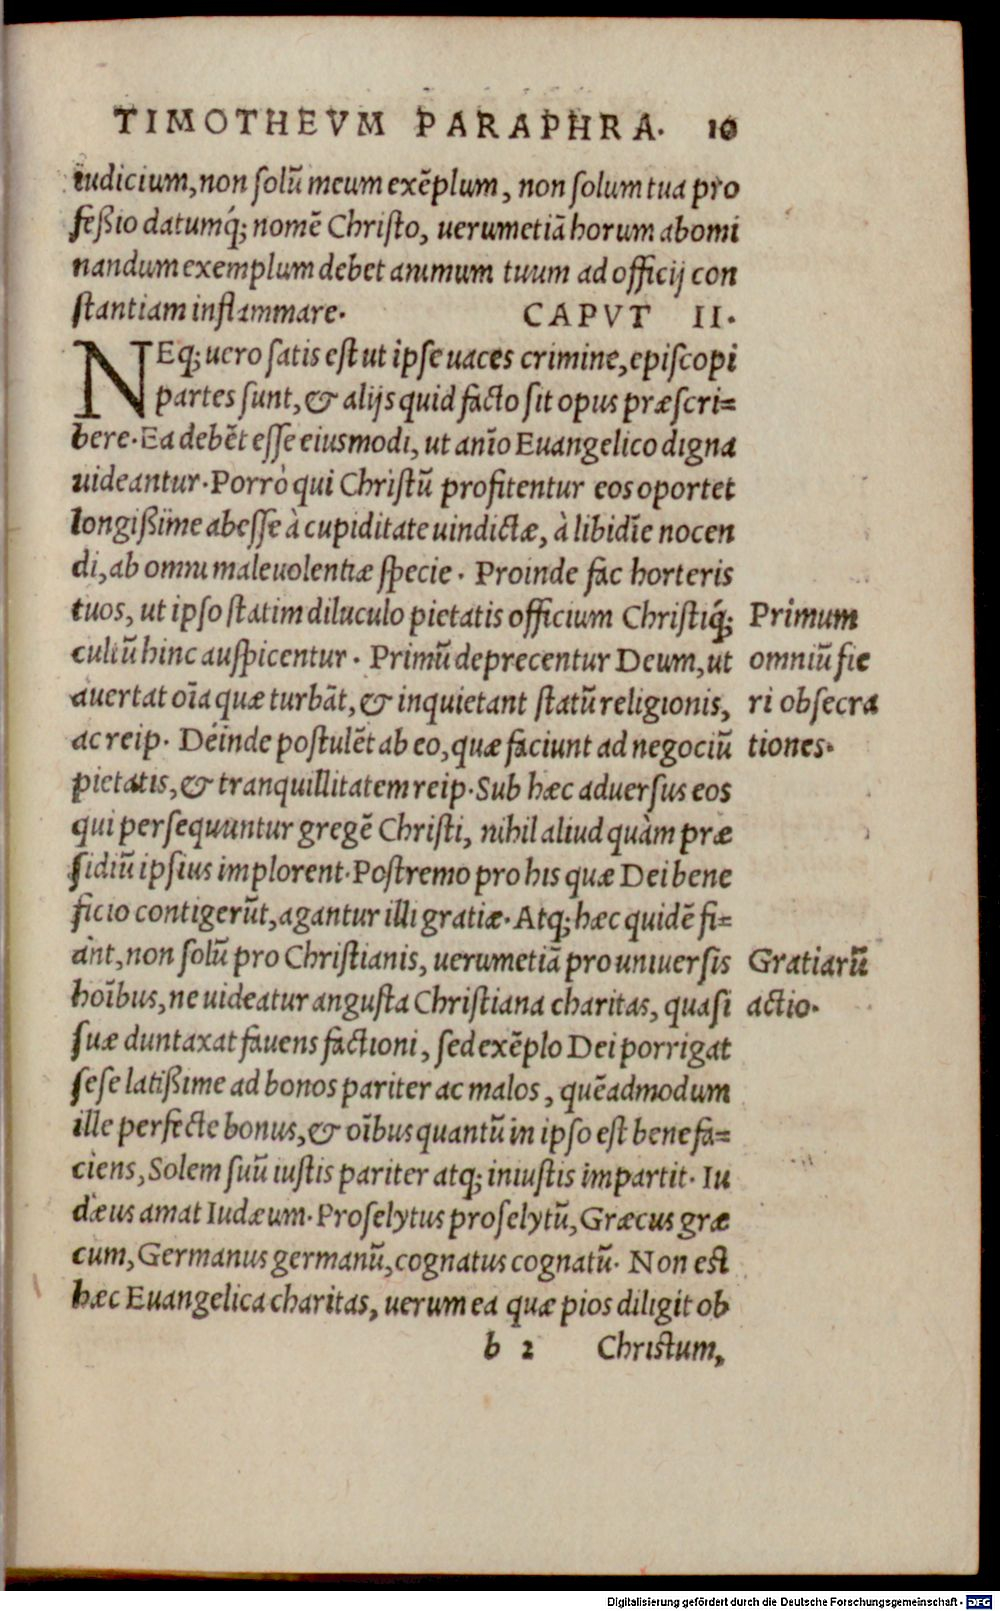 TIMOTHEVM PARAPHRA. 10
iudicium, non solū meum exēplum, non solum tua pro
feßio datumq́; nomē Christo, uerumetiā horum abomi
nandum exemplum debet animum tuum ad officij con
stantiam inflammare. CAPVT II.
NEq; uero satis est ut ipse uaces crimine, episcopi
partes sunt, & alijs quid facto sit opus præscri=
bere. Ea debēt esse eiusmodi, ut anīo Euangelico digna
uideantur. Porrò qui Christū profitentur eos oportet
longißīme abesse à cupiditate uindictæ, à libidīe nocen
di, ab omni maleuolentiæ specie. Proinde fac horteris
tuos, ut ipso statim diluculo pietatis officium Christiq́;
cultū hinc auspicentur. Primū deprecentur Deum, ut
auertat oīa quæ turbāt, & inquietant statū religionis,
ac reip. Deinde postulēt ab eo, quæ faciunt ad negociū
pietatis, & tranquillitatem reip. Sub hæc aduersus eos
qui persequuntur gregē Christi, nihil aliud quàm præ
sidiū ipsius implorent. Postremo pro his quæ Dei bene
ficio contigerūt, agantur illi gratiæ. Atq; hæc quidē fi=
ant, non solū pro Christianis, uerumetiā pro uniuersis
hoībus, ne uideatur angusta Christiana charitas, quasi
suæ duntaxat fauens factioni, sed exēplo Dei porrigat
sese latißime ad bonos pariter ac malos, quēadmodum
ille perfecte bonus, & oībus quantū in ipso est benefa=
ciens, Solem suū iustis pariter atq; iniustis impartit. Iu
dæus amat Iudæum. Proselytus proselytū, Græcus græ
cum, Germanus germanū, cognatus cognatū. Non est
hæc Euangelica charitas, uerum ea quæ pios diligit ob
b 2 Christum,
Primum
omniū fie
ri obsecra
tiones.
Gratiarū
actio.
Digitalisierung gefördert durch die Deutsche Forschungsgemeinschaft - DFG